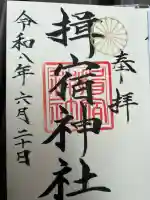 奉拝
揖宿神社
令和八年六月二十日